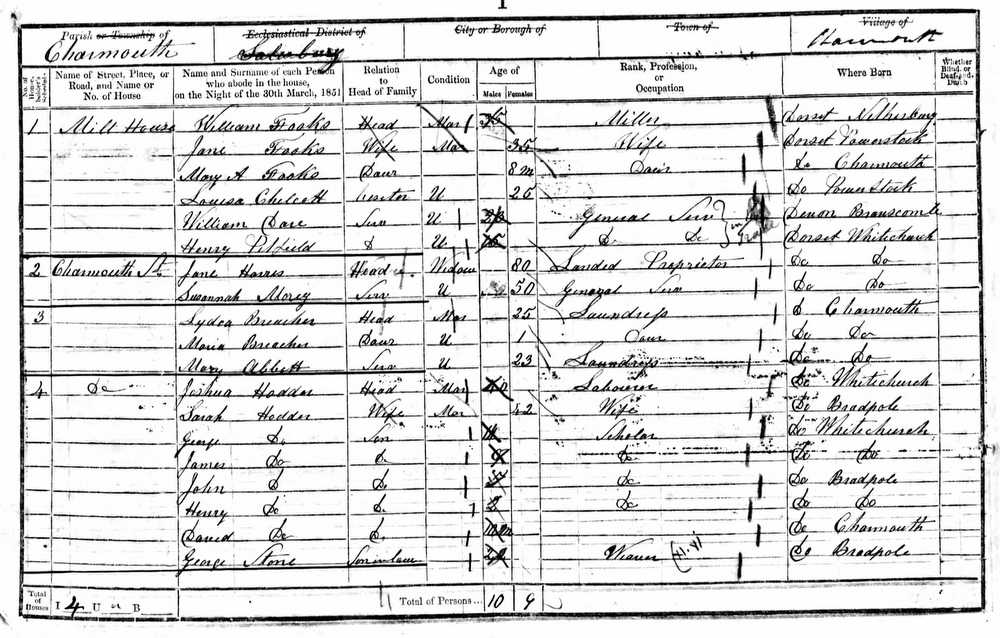 Parish or Township of Ecclesiastical District of City or Borough of Town of Village of
Charmouth Salisbury Charmouth
No. of House-holder's Schedule Name of Street, Place, or Road, and Name or No. of House Name and Surname of each Person who abode in the house, on the Night of the 30th March, 1851 Relation to Head of Family Condition Age of Males Females Rank, Profession, or Occupation Where Born Whether Blind, or Deaf-and-Dumb
1 Mill House William Fooks Head Mar 35 Miller Dorset Netherbury
Jane Fooks Wife Mar 35 Wife Dorset Powerstock
Mary A Fooks Daur 8m Daur Do Charmouth
Louisa Chilcott Visitor U 25 Do Powerstock
William Dare Serv U General Serv Devon Branscombe
Henry Pitfield D U 15 Do Do Dorset Whitechurch
2 Charmouth St Jane Harris Head Widow 80 Landed Proprietor Do Do
Susannah Morey Serv U 50 General Serv Do Do
3 Lydea Breacher Head Mar 25 Laundress D Charmouth
Maria Breacher Daur U 1 Daur Do Do
Mary Abbott Serv U 23 Laundress Do Do
4 Do Joshua Hodder Head Mar 40 Labourer Do Whitechurch
Sarah Hodder Wife Mar 42 Wife Do Bradpole
George Do Son 11 Scholar Do Whitechurch
James Do Do Do Do Do
John D Do Do Do Bradpole
Henry Do Do Do Do Do
David Do D. Do Charmouth
George Stone Son in law Weaver Do Bradpole
Total of Houses I 4 U B Total of Persons... 10 9